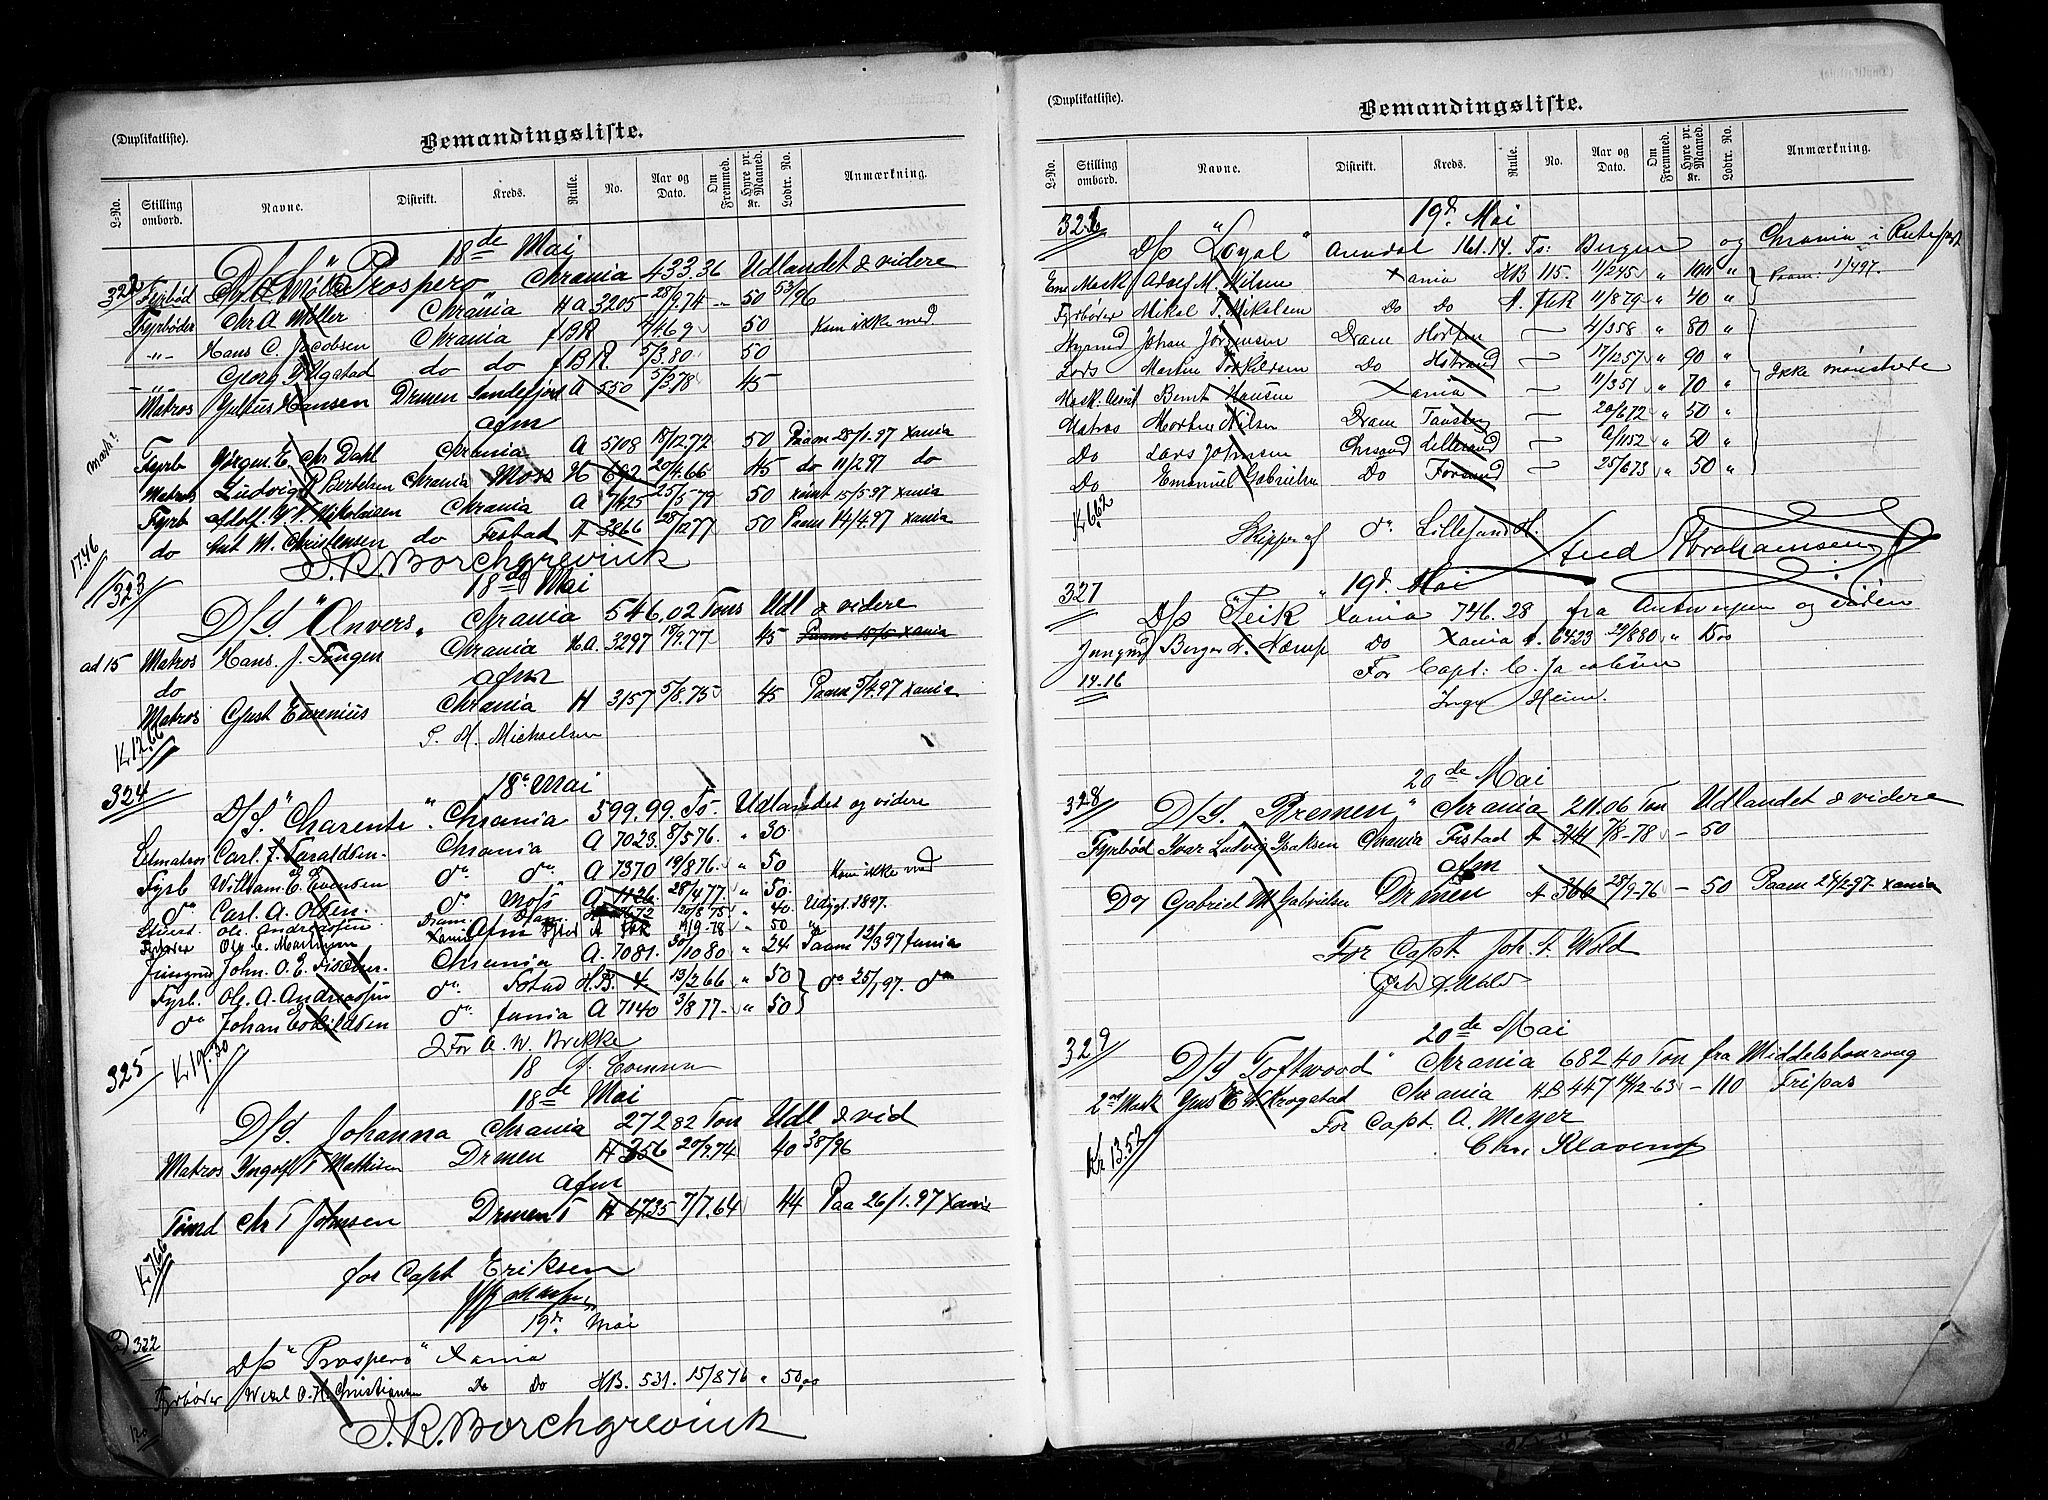 (Duplikatliste).
Bemandingsliste.
L-No. Stilling ombord. Navne. Distrikt. Kreds. Rulle. No. Aar og Dato. Om Fremmed. Hyre pr. Maaned. Kr. Lodtr. No. Anmærkning.
18de Mai
322 D/S "Prospero" Chrania 433.36 Udlandet & videre
Fyrbød Chr A Møller Chrania H A 3205 28/9.74 50 53/96
Fyrbøder Hans C. Jacobsen Chrania f B R 50 Kom ikke med
-"- Georg Ugstad do do f B R. 5/3.80 50
Matros Julius Hansen Drmen Sandefjord A 550 5/3.78 45
afm
Fyrb Jørgen E. Chr Dahl Chrania A 5108 15/12 72 50 Paam 28/1.97 Xania
Matros Ludvig Bertelsen Chrania Moss H 692 20/4.66 45 do 11/2 97 do
Fyrb Adolf Nikolaisen Chrania A 7425 25/5-79 50 15/5-97 Xania
do M. Christensen do Frstad A 3866 28/10 77 50 Paam 14/4.97 Xania
17.46
J. R. Borchgrevink
323 18de Mai
D/S. "Anvers" Chrania 546.02 Tons Udl & videre
ad 15 Matros Hans. J. Chrania H A. 3297 19/9.77 45 Paam 15/5 Xania
do afm
Matros Gust Eurenius Chrania H 3157 5/8.75 45 Paam 5/4.97 Xania
K 12.66
S. M. Michaelsen
324 18de Mai
D/S. "Charente" Chrania 599.99. Ts Udlandet og videre
Letmatros Carl. J. Taraldsen. Chrania A 7023. 8/5 76. " 30
Fyrb William. E. Evensen do do A 7370 19/8 76. " 50 Kom ikke med
do Carl. A. Olsen. do Moss A 1126. 28/4 77 " 50.
Ole Andreassen Dram 20/8 75 " 40. Udygt. 1897.
Fyrbøder Ole C. Martinsen Xania Afm A 19/9-78 " 50 "
Jungmd John. O. E. Chrania A. 7081. 30/10 80 " 24 Paam 12/3 97 Xania
Fyrb. Ole. A. Andreassen do H.B. 4. 13/2 66 " 50 do 25/1 97. do
do Johan Eskildsen do Xania A 7140 3/8 77 " 50
K 19.30
For A. W. Brekke
325 18 J. Evensen
18de Mai
D/S. Johanna Chrania 272 82 Ton Udl & vid
Matros Yngolf T Mathisen Drmen H 356 20/9.74 40 38/96
afm
Tømd Chr T Johnsen Drmen T H 6735 7/7.64 44 Paa 26/1.97 Xania
K 7.66
for Capt Eriksen
19de Mai
ad 322
D/S "Prospero" Xania
Fyrbøder O. H. Christiansen Do Do HB. 531. 15/8 76 " 50,00
J. R. Borchgrevink
(Duplikatliste).
Bemandingsliste.
L-No. Stilling ombord. Navne. Distrikt. Kreds. Rulle. No. Aar og Dato. Om Fremmed. Hyre pr. Maaned. Kr. Lodtr. No. Anmærkning.
326 19d. Mai
D/s "Loyal" Arendal 161.14. Ts: Bergen og Chrania i Rutefart
Ene Mask Adolf M. Nilsen Xania HB 115. 11/2 45 " 100 " Paam. 1/4 97.
Fyrbøder Mikal T. Mikalsen Do Do A. 11/8 79 " 40 "
Styrmd Johan Jørgensen Dram Horten 4/3 58 " 80 "
Lods Martin Torkildsen Do 17/12 57 " 90 " Ikke mønstrede
Mask. Assist Bernt Hansen Xania 11/3 51 " 70 "
Matros Morten Nilsen Dram Tønsberg 20/6 72 " 50 "
Do Lars Johnsen Chrsand Lillesand " 50 "
Do Emanuel Gabrielsen Do 25/6 73 " 50 "
K 6.62
Skipper af do Lillesand H.
Abrahamsen
327 19d. Mai
D/s "Teik" Xania 746.28 fra Antwerpen og viden
Jungmd Birger L. Nærup Do Xania A. 6423 29/8 80 " 15 00
14.16 For Capt: C. Jacobsen
Inga Heim.
20de Mai
328 D/S. "Bremen" Chrania 211.06 Ton Udlandet & videre
Fyrbød Ivar Ludvig Isaksen Chrania Frstad A 341 7/8-78 - 50
afm
Do Gabriel M Gabrielsen Drmen A 360 28/9-76 - 50 Paam 24/2-97. Xania
For Capt. Joh. A. Wold
20de Mai
329 D/S "Toftwood" Chrania 682 40 Ton fra Middelsbouroug
2nd Mask Krogstad Chrania H.B 447 14/12-63 - 110 Fripas
For Capt. A. Meyer
Kr 13.52
Chr. Klavenes